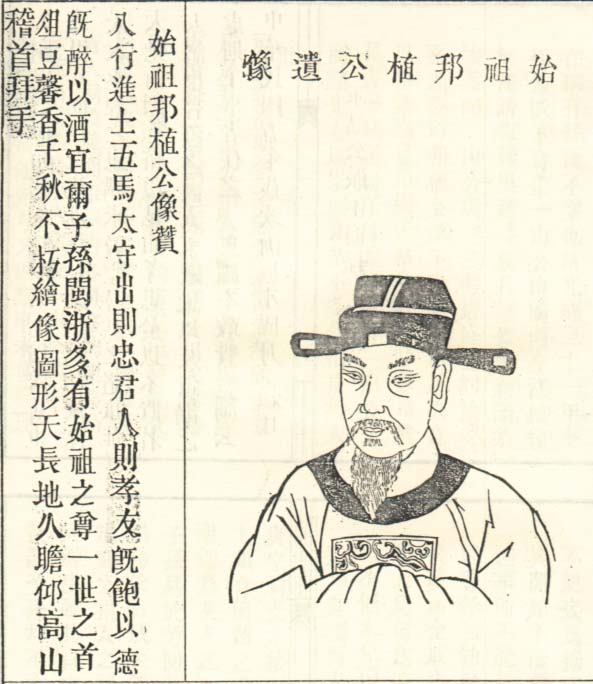 始祖邦植公遺像
始祖邦植公像贊
八行進士五馬太守出則忠君入則孝友旣飽以德
旣醉以酒宜爾子孫閩浙多有始祖之尊一世之首
俎豆馨香千秋不朽繪像圖形天長地久瞻仰高山
稽首拜手